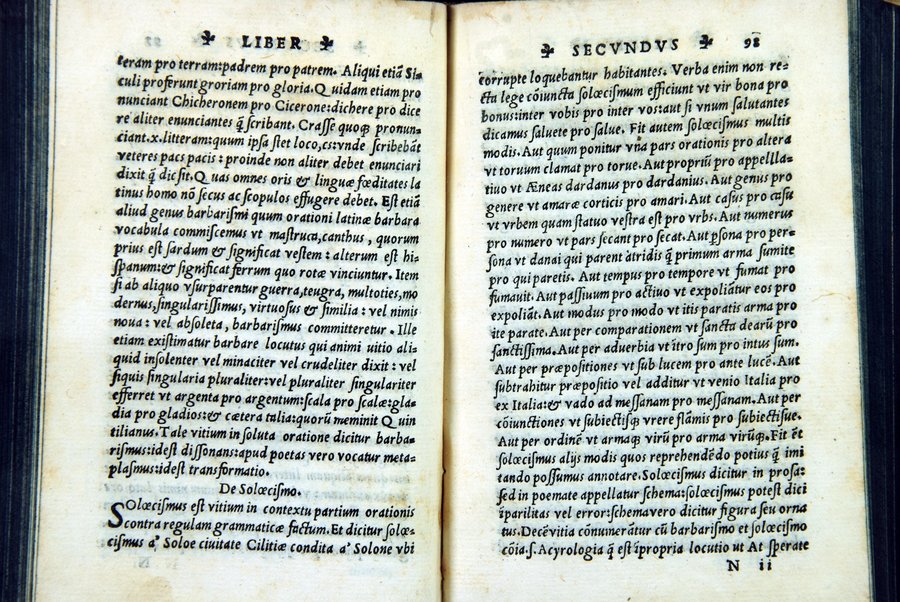 LIBER
teram pro terram:padrem pro patrem. Aliqui etiã Si-
culi proferunt groriam pro gloria. Quidam etiam pro
nunciant Chicheronem pro Cicerone:dichere pro dice
re aliter enunciantes ꝗ̃ scribant. Crasse quoqꝫ pronun-
ciant.x.litteram:quum ipsa stet loco,cs:vnde scribebãt
veteres pacs pacis: proinde non aliter debet enunciari
dixit ꝗ̃ dicsit. Quas omnes oris & linguæ fœditates la
tinus homo nõ secus ac scopulos effugere debet. Est etiã
aliud genus barbarismi quum orationi latinæ barbara
vocabula commiscemus vt mastruca,canthus, quorum
prius est sardum & significat vestem: alterum est hi-
spanum:& significat ferrum quo rotæ vinciuntur. Item
si ab aliquo vsurparentur guerra,teugra, multoties,mo
dernus,singularissimus, virtuosus & similia: vel nimis
noua: vel absoleta, barbarismus committeretur. Ille
etiam existimatur barbare locutus qui animi uitio ali-
quid insolenter vel minaciter vel crudeliter dixit: vel
siquis singularia pluraliter:vel pluraliter singulariter
efferret vt argenta pro argentum:scala pro scalæ:gla-
dia pro gladios:& cætera talia:quorũ meminit Quin
tilianus. Tale vitium in soluta oratione dicitur barba-
rismus:idest dissonans:apud poetas vero vocatur meta-
plasmus:idest transformatio.
De Solœcismo.
Solœcismus est vitium in contextu partium orationis
contra regulam grammaticæ factum. Et dicitur solœ-
cismus a' Soloe ciuitate Cilitiæ condita a' Solone vbi
SECVNDVS 98
corrupte loquebantur habitantes. Verba enim non re-
cta lege cõiuncta solœcismum efficiunt vt vir bona pro
bonus:inter vobis pro inter vos:aut si vnum salutantes
dicamus saluete pro salue. Fit autem solœcismus multis
modis. Aut quum ponitur vna pars orationis pro altera
vt toruum clamat pro torue. Aut propriũ pro appella-
tiuo vt Æneas dardanus pro dardanius. Aut genus pro
genere vt amaræ corticis pro amari. Aut casus pro casu
vt vrbem quam statuo vestra est pro vrbs. Aut numerus
pro numero vt pars secant pro secat. Aut ꝑsona pro per-
sona vt danai qui parent atridis ꝗ̃ primum arma sumite
pro qui paretis. Aut tempus pro tempore vt fumat pro
fumauit. Aut passiuum pro actiuo vt expoliãtur eos pro
expoliãt. Aut modus pro modo vt itis paratis arma pro
ite parate. Aut per comparationem vt sancta dearũ pro
sanctissima. Aut per aduerbia vt itro sum pro intus sum.
Aut per præpositiones vt sub lucem pro ante lucẽ. Aut
subtrahitur præpositio vel additur vt venio Italia pro
ex Italia:& vado ad messanam pro messanam. Aut per
cõiunctiones vt subiectisqꝫ vrere flãmis pro subiectisue.
Aut per ordinẽ vt armaqꝫ virũ pro arma virũqꝫ. Fit et̃
solœcismus alijs modis quos reprehendẽdo potius ꝗ̃ imi
tando possumus annotare. Solœcismus dicitur in prosa:
sed in poemate appellatur schema:solœcismus potest dici
iparilitas vel error:schema vero dicitur figura seu orna
tus. Decẽ vitia cõnumerãtur cũ barbarismo et solœcismo
cõia.s. Acyrologia ꝗ̃ est ipropria locutio ut At sperate
N ii